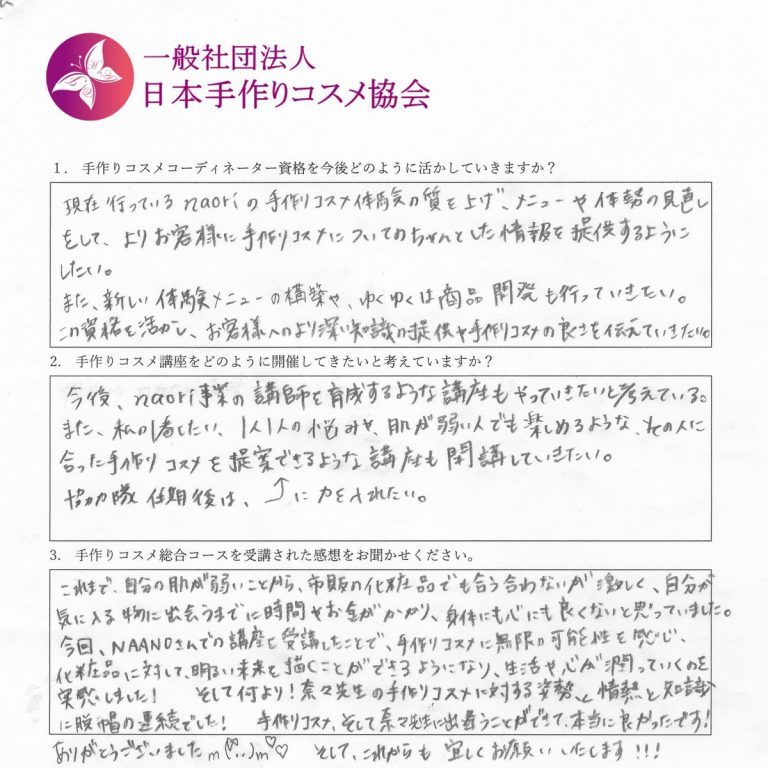 一般社団法人
日本手作りコスメ協会
1. 手作りコスメコーディネーター資格を今後どのように活かしていきますか？
現在行っているnaoriの手作りコスメ体験の質を上げ、メニューや体勢の見直し
をして、よりお客様に手作りコスメについてのちゃんとした情報を提供するように
したい。
また、新しい体験メニューの構築や、ゆくゆくは商品開発も行っていきたい。
この資格を活かし、お客様へのより深い知識の提供や手作りコスメの良さを伝えていきたい。
2. 手作りコスメ講座をどのように開催してきたいと考えていますか？
今後、naori事業の講師を育成するような講座もやっていきたいと考えている。
また、私の1番したい、1人1人の悩みや、肌が弱い人でも楽しめるような、その人に
合った手作りコスメを提案できるような講座も開講していきたい。
協力隊任期後は、⤴に力を入れたい。
3. 手作りコスメ総合コースを受講された感想をお聞かせください。
これまで、自分の肌が弱いことから、市販の化粧品でも合う合わないが激しく、自分が
気に入る物に出会うまでに時間やお金がかかり、身体にも心にも良くないと思っていました。
今回、NAANOさんでの講座を受講したことで、手作りコスメに無限の可能性を感じ、
化粧品に対して、明るい未来を描くことができるようになり、生活や心が潤っていくのを
実感しました！ そして何より！奈々先生の手作りコスメに対する姿勢、情熱と知識
に脱帽の連続でした！ 手作りコスメ、そして奈々先生に出会うことができて、本当に良かったです！
ありがとうございましたm(..)m♡♡ そして、これからも宜しくお願いいたします!!!